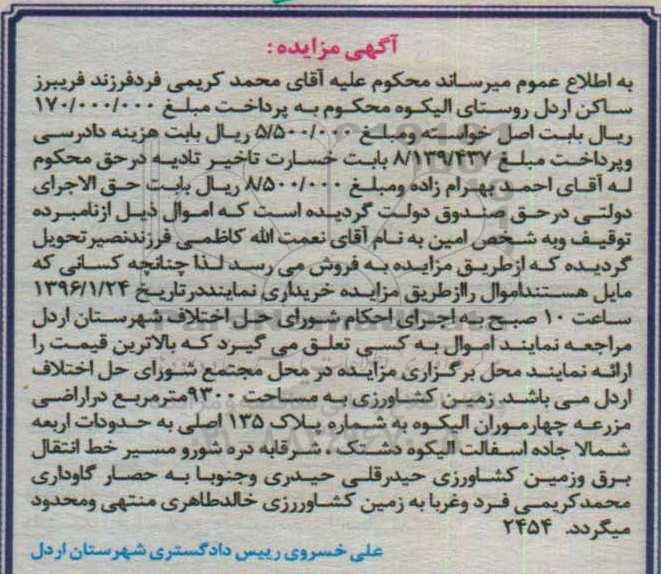 آگهی مزایده:
به اطلاع عموم میرساند محکوم علیه آقای محمد کریمی فردفرزند فریبرز
ساکن اردل روستای الیکوه محکوم به پرداخت مبلغ ۱۷۰/۰۰۰/۰۰۰
ریال بابت اصل خواسته ومبلغ ۵/۵۰۰/۰۰۰ ریال بابت هزینه دادرسی
وپرداخت مبلغ ۸/۱۳۹/۴۳۷ بابت خسارت تاخیر تادیه درحق محکوم
له آقای احمد بهرام زاده ومبلغ ۸/۵۰۰/۰۰۰ ریال بابت حق الاجرای
دولتی درحق صندوق دولت گردیده است که اموال ذیل ازنامبرده
توقیف وبه شخص امین به نام آقای نعمت الله کاظمی فرزندنصیرتحویل
گردیده که ازطریق مزایده به فروش می رسد لذا چنانچه کسانی که
مایل هستنداموال راازطریق مزایده خریداری نماینددرتاریخ ۱۳۹۶/۱/۲۴
ساعت ۱۰ صبح به اجرای احکام شورای حل اختلاف شهرستان اردل
مراجعه نمایند اموال به کسی تعلق می گیرد که بالاترین قیمت را
ارائه نمایند محل برگزاری مزایده در محل مجتمع شورای حل اختلاف
اردل می باشد. زمین کشاورزی به مساحت ۹۳۰۰مترمربع دراراضی
مزرعه چهارموران الیکوه به شماره پلاک ۱۳۵ اصلی به حدودات اربعه
شمالا جاده اسفالت الیکوه دشتک ، شرقابه دره شورو مسیر خط انتقال
برق وزمین کشاورزی حیدرقلی حیدری وجنوبا به حصار گاوداری
محمدکریمی فرد وغربا به زمین کشاوررزی خالدطاهری منتهی ومحدود
میگردد. ۲۴۵۴
علی خسروی رییس دادگستری شهرستان اردل